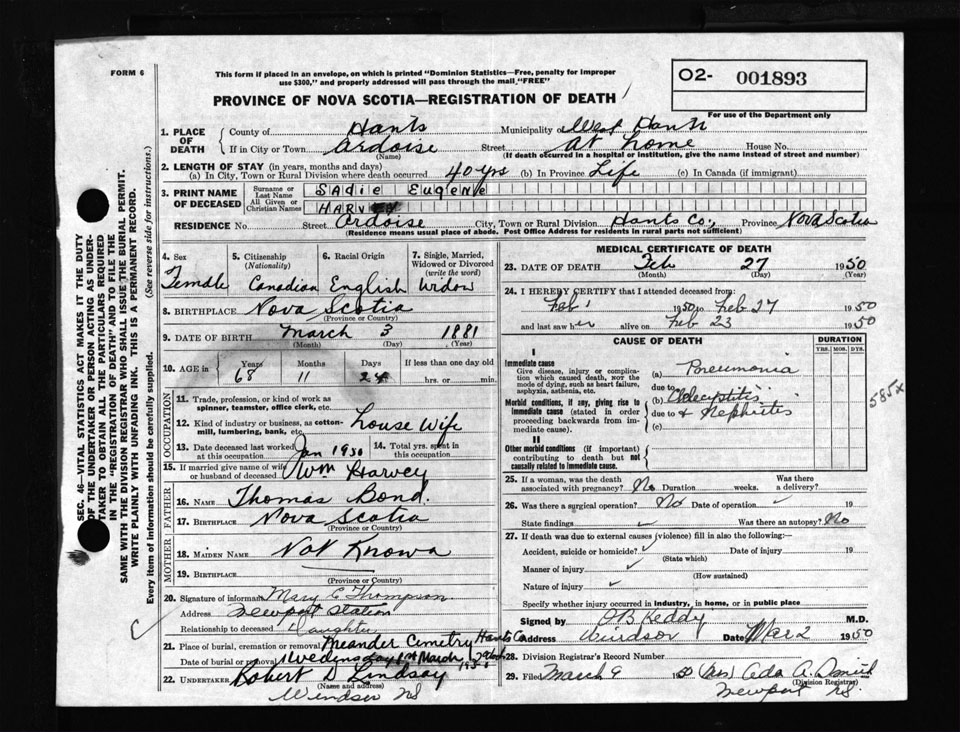 FORM 6
This form if placed in an envelope, on which is printed "Dominion Statistics—Free, penalty for improper
use $300," and properly addressed will pass through the mail "FREE"
O2- 001893
For use of the Department only
PROVINCE OF NOVA SCOTIA—REGISTRATION OF DEATH
1. PLACE OF DEATH
County of Hants Municipality of West Hants
If in City or Town Ardoise Street At home House No.
(Name) (If death occurred in a hospital or institution, give the name instead of street and number)
2. LENGTH OF STAY (in years, months and days)
(a) In City, Town or Rural Division where death occurred 40 yrs (b) In Province Life (c) In Canada (if immigrant)
3. PRINT NAME OF DECEASED
Surname or Last Name SADIE EUGENE
All Given or Christian Names HARVEY
RESIDENCE No. Street Ardoise City, Town or Rural Division Hants Co., Province Nova Scotia
(Residence means usual place of abode. Post Office Address for residents in rural parts not sufficient)
4. Sex Female
5. Citizenship (Nationality) Canadian
6. Racial Origin English
7. Single, Married, Widowed or Divorced (write the word) Widow
8. BIRTHPLACE Nova Scotia
(Province or Country)
9. DATE OF BIRTH March 3 1881
(Month) (Day) (Year)
10. AGE in Years 68 Months 11 Days 24 If less than one day old
hrs. or min.
OCCUPATION
11. Trade, profession, or kind of work as
spinner, teamster, office clerk, etc.
12. Kind of industry or business, as cotton-
mill, lumbering, bank, etc. House Wife
13. Date deceased last worked at this occupation Jan 1950
14. Total yrs. spent in this occupation
15. If married give name of wife or husband of deceased Wm Harvey
FATHER
16. NAME Thomas Bond.
17. BIRTHPLACE Nova Scotia
(Province or Country)
MOTHER
18. MAIDEN NAME Not Known
19. BIRTHPLACE
(Province or Country)
20. Signature of informant Mary E Thompson
Address Newport Station
Relationship to deceased Daughter
21. Place of burial, cremation or removal Meander Cemetry Hants Co
Date of burial or removal Wedensday 1st March 1950
22. UNDERTAKER Robert D Lindsay
(Name and address)
Windsor NS
MEDICAL CERTIFICATE OF DEATH
23. DATE OF DEATH Feb 27 1950
(Month) (Day) (Year)
24. I HEREBY CERTIFY that I attended deceased from:
Feb 1 1950 to Feb 27 1950
and last saw her alive on Feb 23 1950
CAUSE OF DEATH
DURATION
YRS. MOS. DYS.
I
Immediate cause
Give disease, injury or complica-
tion which caused death, not the
mode of dying, such as heart failure,
asphyxia, asthenia, etc.
(a) Pneumonia
due to
Morbid conditions, if any, giving rise to
immediate cause (stated in order
proceeding backwards from im-
mediate cause).
(b)
due to & Nephritis
(c)
585x
II
Other morbid conditions (if important)
contributing to death but not
causally related to immediate cause.
25. If a woman, was the death associated with pregnancy? No Duration weeks. Was there a delivery?
26. Was there a surgical operation? No Date of operation 19
State findings Was there an autopsy? No
27. If death was due to external causes (violence) fill in also the following:—
Accident, suicide or homicide? Date of injury 19
(State which)
Manner of injury
(How sustained)
Nature of injury
Specify whether injury occurred in industry, in home, or in public place
Signed by O B Keddy M.D.
Address Windsor Date Mar 2 1950
28. Division Registrar's Record Number
29. Filed March 9 1950 (Mrs) Ada A.
(Division Registrar)
Newport NS.
SEC. 46—VITAL STATISTICS ACT MAKES IT THE DUTY
OF THE UNDERTAKER OR PERSON ACTING AS UNDER-
TAKER TO OBTAIN ALL THE PARTICULARS REQUIRED
IN THE "REGISTRATION OF DEATH" AND TO FILE THE
SAME WITH THE DIVISION REGISTRAR WHO SHALL ISSUE THE BURIAL PERMIT.
WRITE PLAINLY WITH UNFADING INK. THIS IS A PERMANENT RECORD.
Every item of information should be carefully supplied. (See reverse side for instructions.)